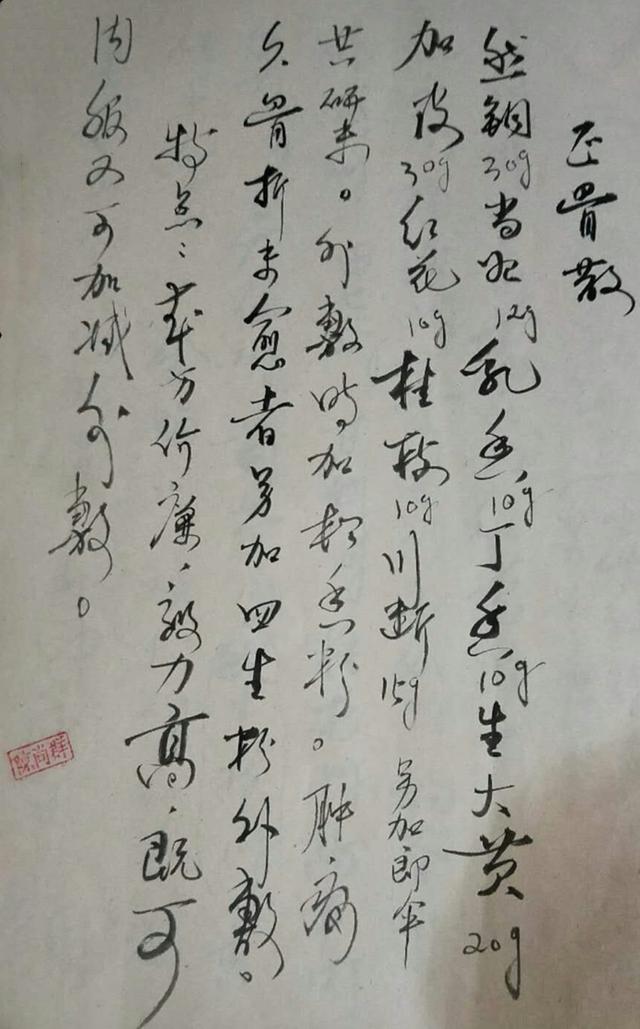 正骨散
然铜30g当归12g乳香10g丁香10g生大黄20g
加皮30g红花10g桂枝10g川断15g 另加
共研末。外敷时加松香粉。肿痛
久骨折未愈者另加四生粉外敷。
特点:本方价廉、效力高、既可
内服又可加减外敷。